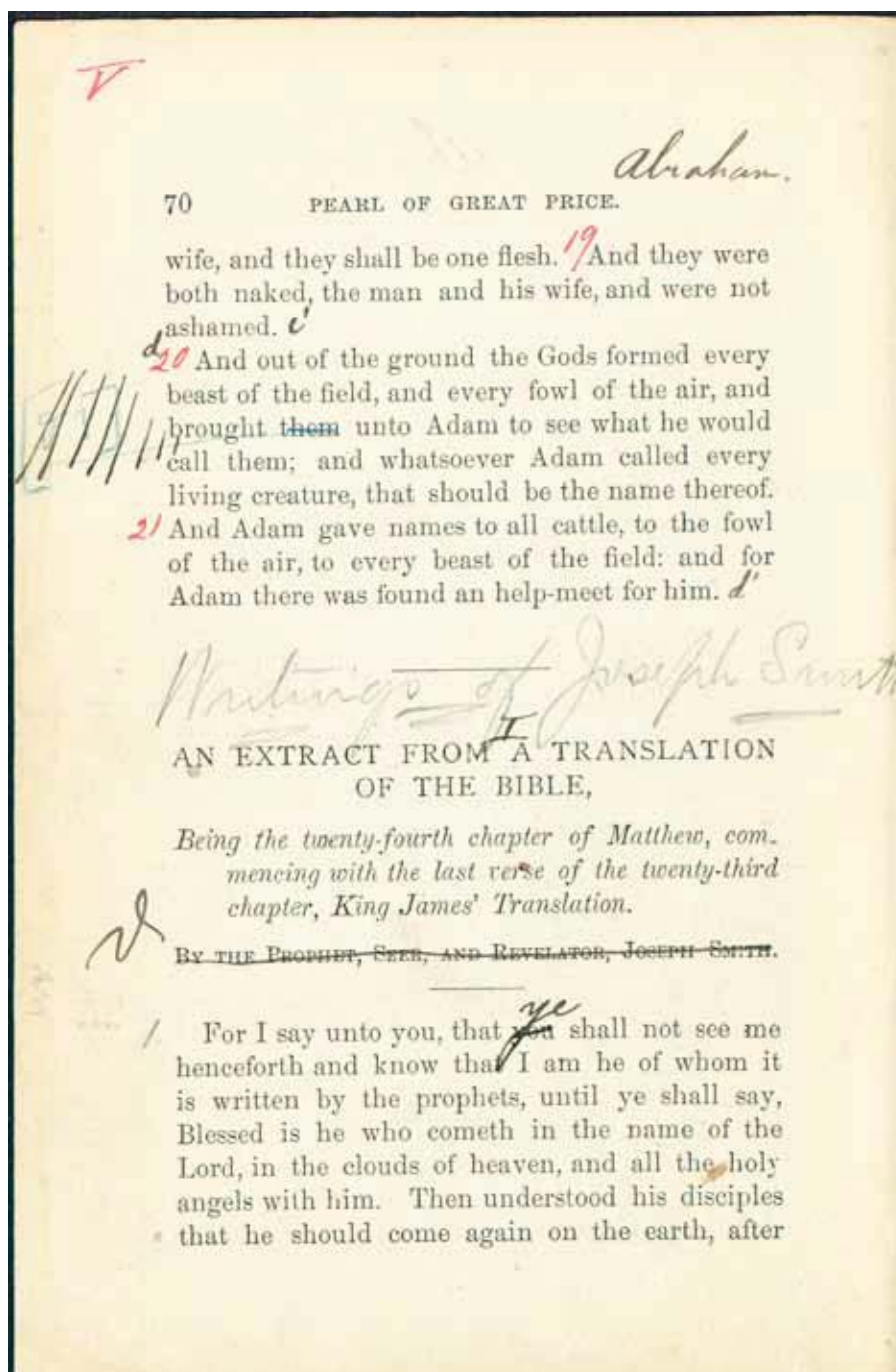 V
Abraham.
70 PEARL OF GREAT PRICE.
wife, and they shall be one flesh. 19/ And they were
both naked, the man and his wife, and were not
ashamed. c'
d 20 And out of the ground the Gods formed every
beast of the field, and every fowl of the air, and
brought them unto Adam to see what he would
call them; and whatsoever Adam called every
living creature, that should be the name thereof.
21 And Adam gave names to all cattle, to the fowl
of the air, to every beast of the field: and for
Adam there was found an help-meet for him. d'
Writings of Joseph Smith
I
AN EXTRACT FROM A TRANSLATION
OF THE BIBLE,
Being the twenty-fourth chapter of Matthew, com-
mencing with the last verse of the twenty-third
chapter, King James' Translation.
BY THE PROPHET, SEER, AND REVELATOR, JOSEPH SMITH.
ye
1 For I say unto you, that you shall not see me
henceforth and know that I am he of whom it
is written by the prophets, until ye shall say,
Blessed is he who cometh in the name of the
Lord, in the clouds of heaven, and all the holy
angels with him. Then understood his disciples
that he should come again on the earth, after